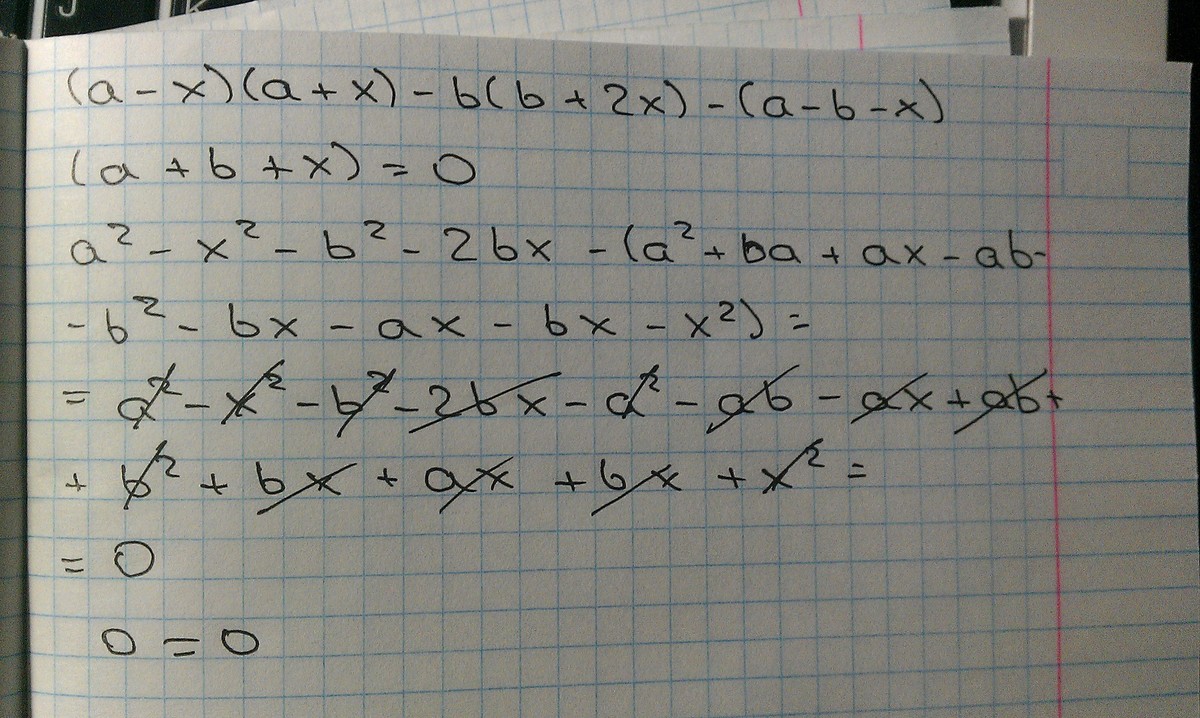 (a - x)(a + x) - b(b + 2x) - (a - b - x)
(a + b + x) = 0
a² - x² - b² - 2bx - (a² + ba + ax - ab -
- b² - bx - ax - bx - x²) =
= a² - x² - b² - 2bx - a² - ab - ax + ab +
+ b² + bx + ax + bx + x² =
= 0
0 = 0